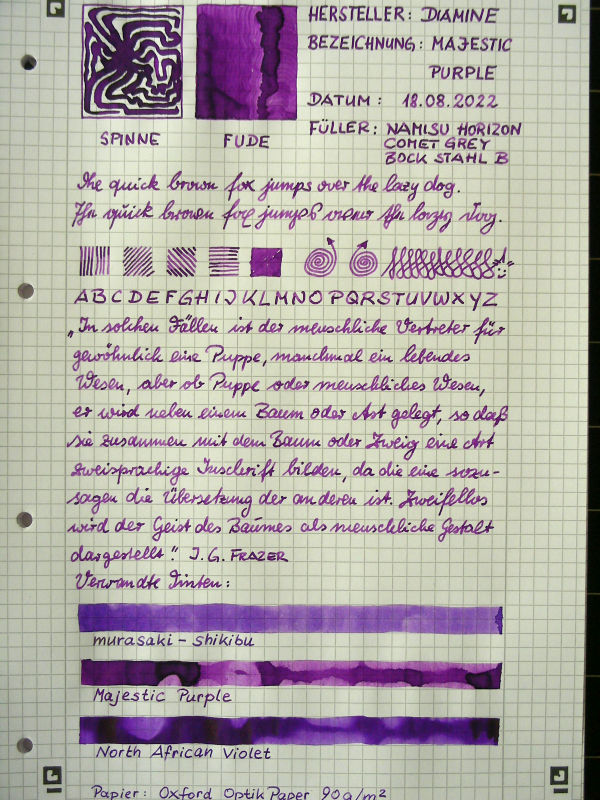 HERSTELLER: DIAMINE
BEZEICHNUNG: MAJESTIC
PURPLE
DATUM: 18.08.2022
FÜLLER: NAMISU HORIZON
COMET GREY
BOCK STAHL B
SPINNE FUDE
The quick brown fox jumps over the lazy dog.
The quick brown fox jumps over the lazy dog.
ABCDEFGHIJKLMNOPQRSTUVWXYZ
„In solchen Fällen ist der menschliche Vertreter für
gewöhnlich eine Puppe, manchmal ein lebendes
Wesen, aber ob Puppe oder menschliches Wesen,
er wird neben einem Baum oder Ast gelegt, so daß
sie zusammen mit dem Baum oder Zweig eine Art
zweisprachige Inschrift bilden, da die eine sozu-
sagen die Übersetzung der anderen ist. Zweifellos
wird der Geist des Baumes als menschliche Gestalt
dargestellt." J. G. FRAZER
Verwandte Tinten:
murasaki-shikibu
Majestic Purple
North African Violet
Papier: Oxford Optik Paper 90g/m²